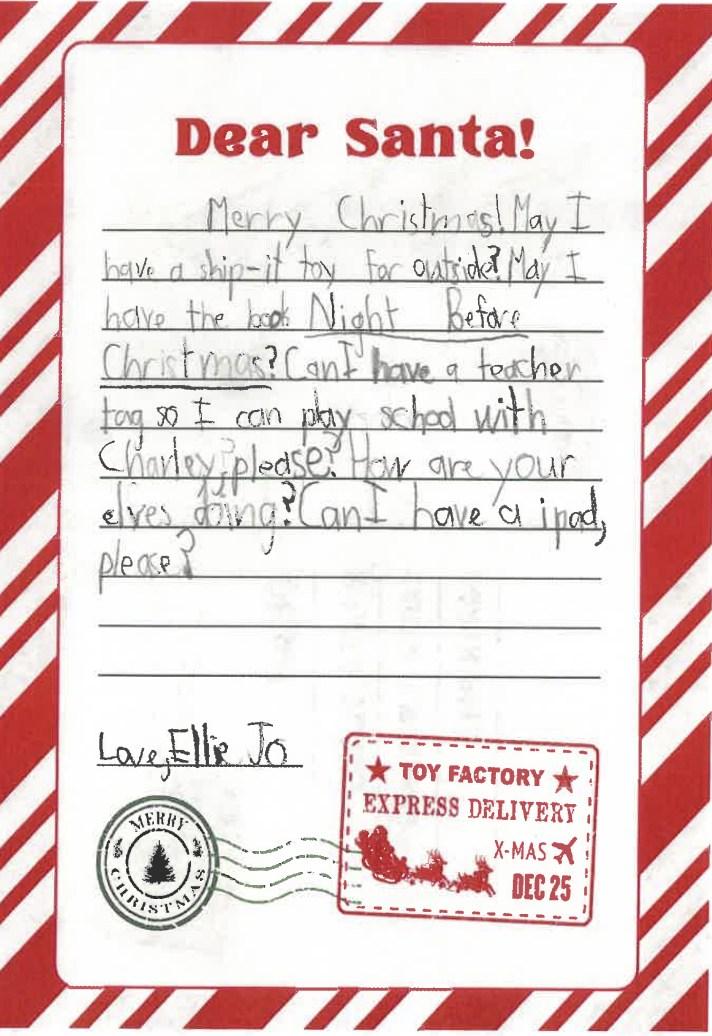 Dear Santa!
Merry Christmas! May I
have a ship-it toy for outside? May I
have the book Night Before
Christmas? Can I have a teacher
tag so I can play school with
Charley, please? How are your
elves doing? Can I have a ipad,
please?
Love, Ellie Jo
TOY FACTORY
EXPRESS DELIVERY
X-MAS
DEC 25
MERRY
CHRISTMAS